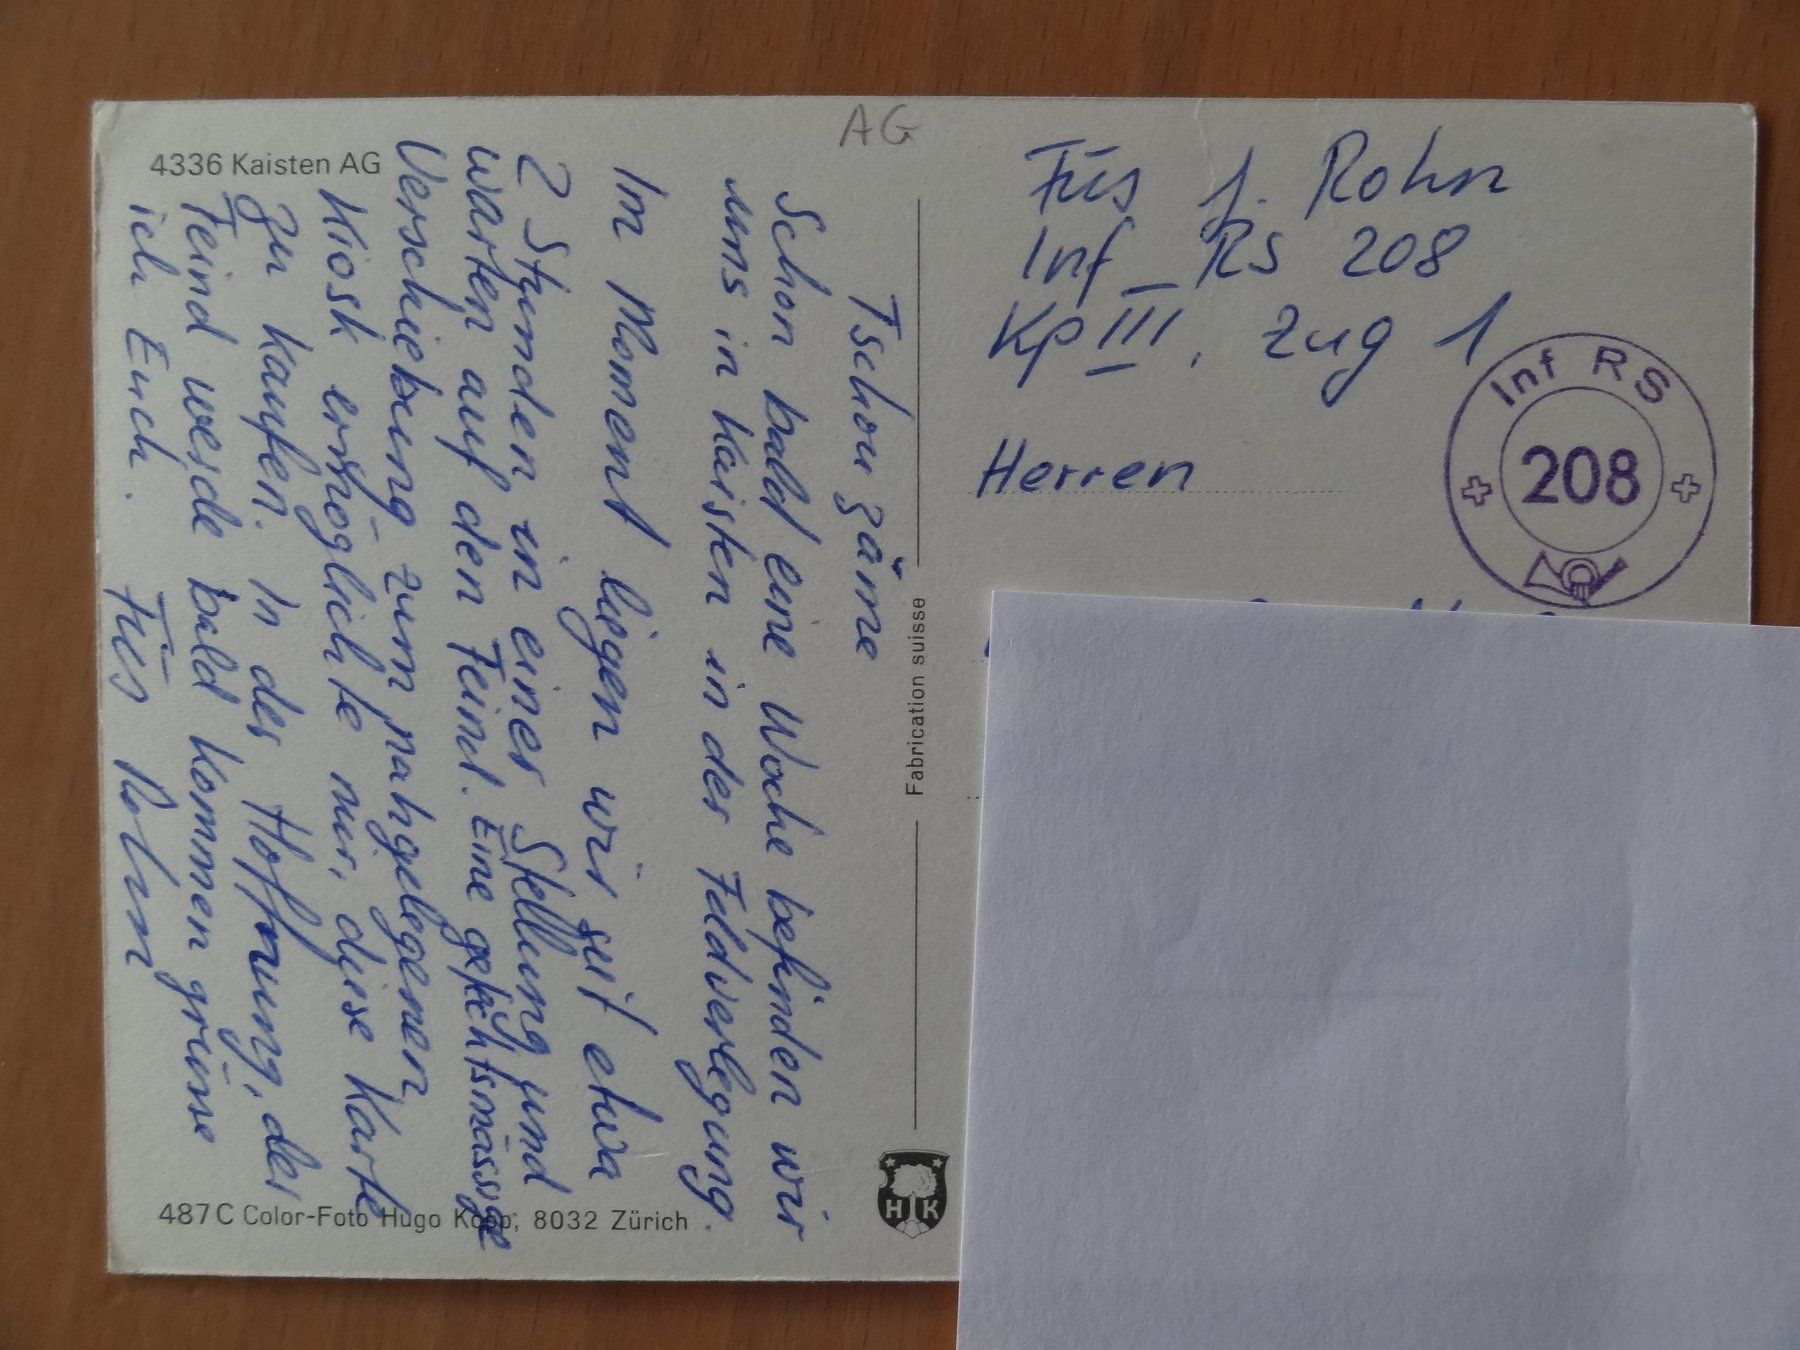 4336 Kaisten AG
AG
Tschou zäme
Schon bald eine Woche befinden wir
uns in Kaisten in der Feldverlegung.
Im Moment liegen wir seit etwa
2 Stunden in einer Stellung und
warten auf den Feind. Eine gefechtsmässige
Verschiebung zum nahgelegenen
Kiosk ermöglichte mir, diese Karte
zu kaufen. In der Hoffnung, der
Feind werde bald kommen grüsse
ich Euch. Füs Rohn
487 C Color-Foto Hugo Kopp, 8032 Zürich
Fabrication suisse
H K
Füs J. Rohn
Inf RS 208
Kp III, Zug 1
Herren
Inf RS
208